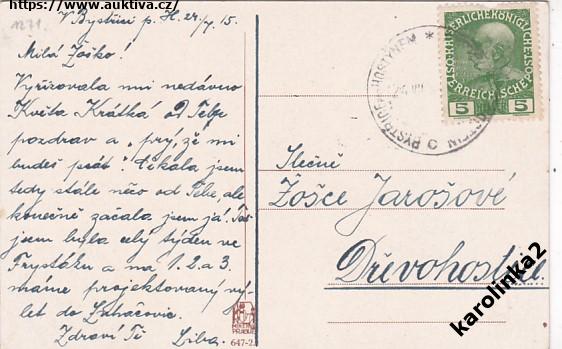 https://www.auktiva.cz/
1271.
V Bystřici p. H. 24/7. 15.
Milá Žoško!
Vyřizovala mi nedávno
Květa Krátká od Tebe
pozdrav a „prý, že mi
budeš psát“. Čekala jsem
tedy stále něco od Tebe, ale
konečně začala jsem já.
jsem byla celý týden ve
Fryštáku a na 1. 2. a 3.
máme projektovaný vý-
let do Luhačovic.
Zdraví Tě Liba.
647-2
KAISERLICHE KÖNIGLICHE
ÖSTERREICHISCHE
5 5
BYSTŘICE HOSTÝNEM *
Slečně
Žošce Jarošové
Dřevohostice
karolinka2